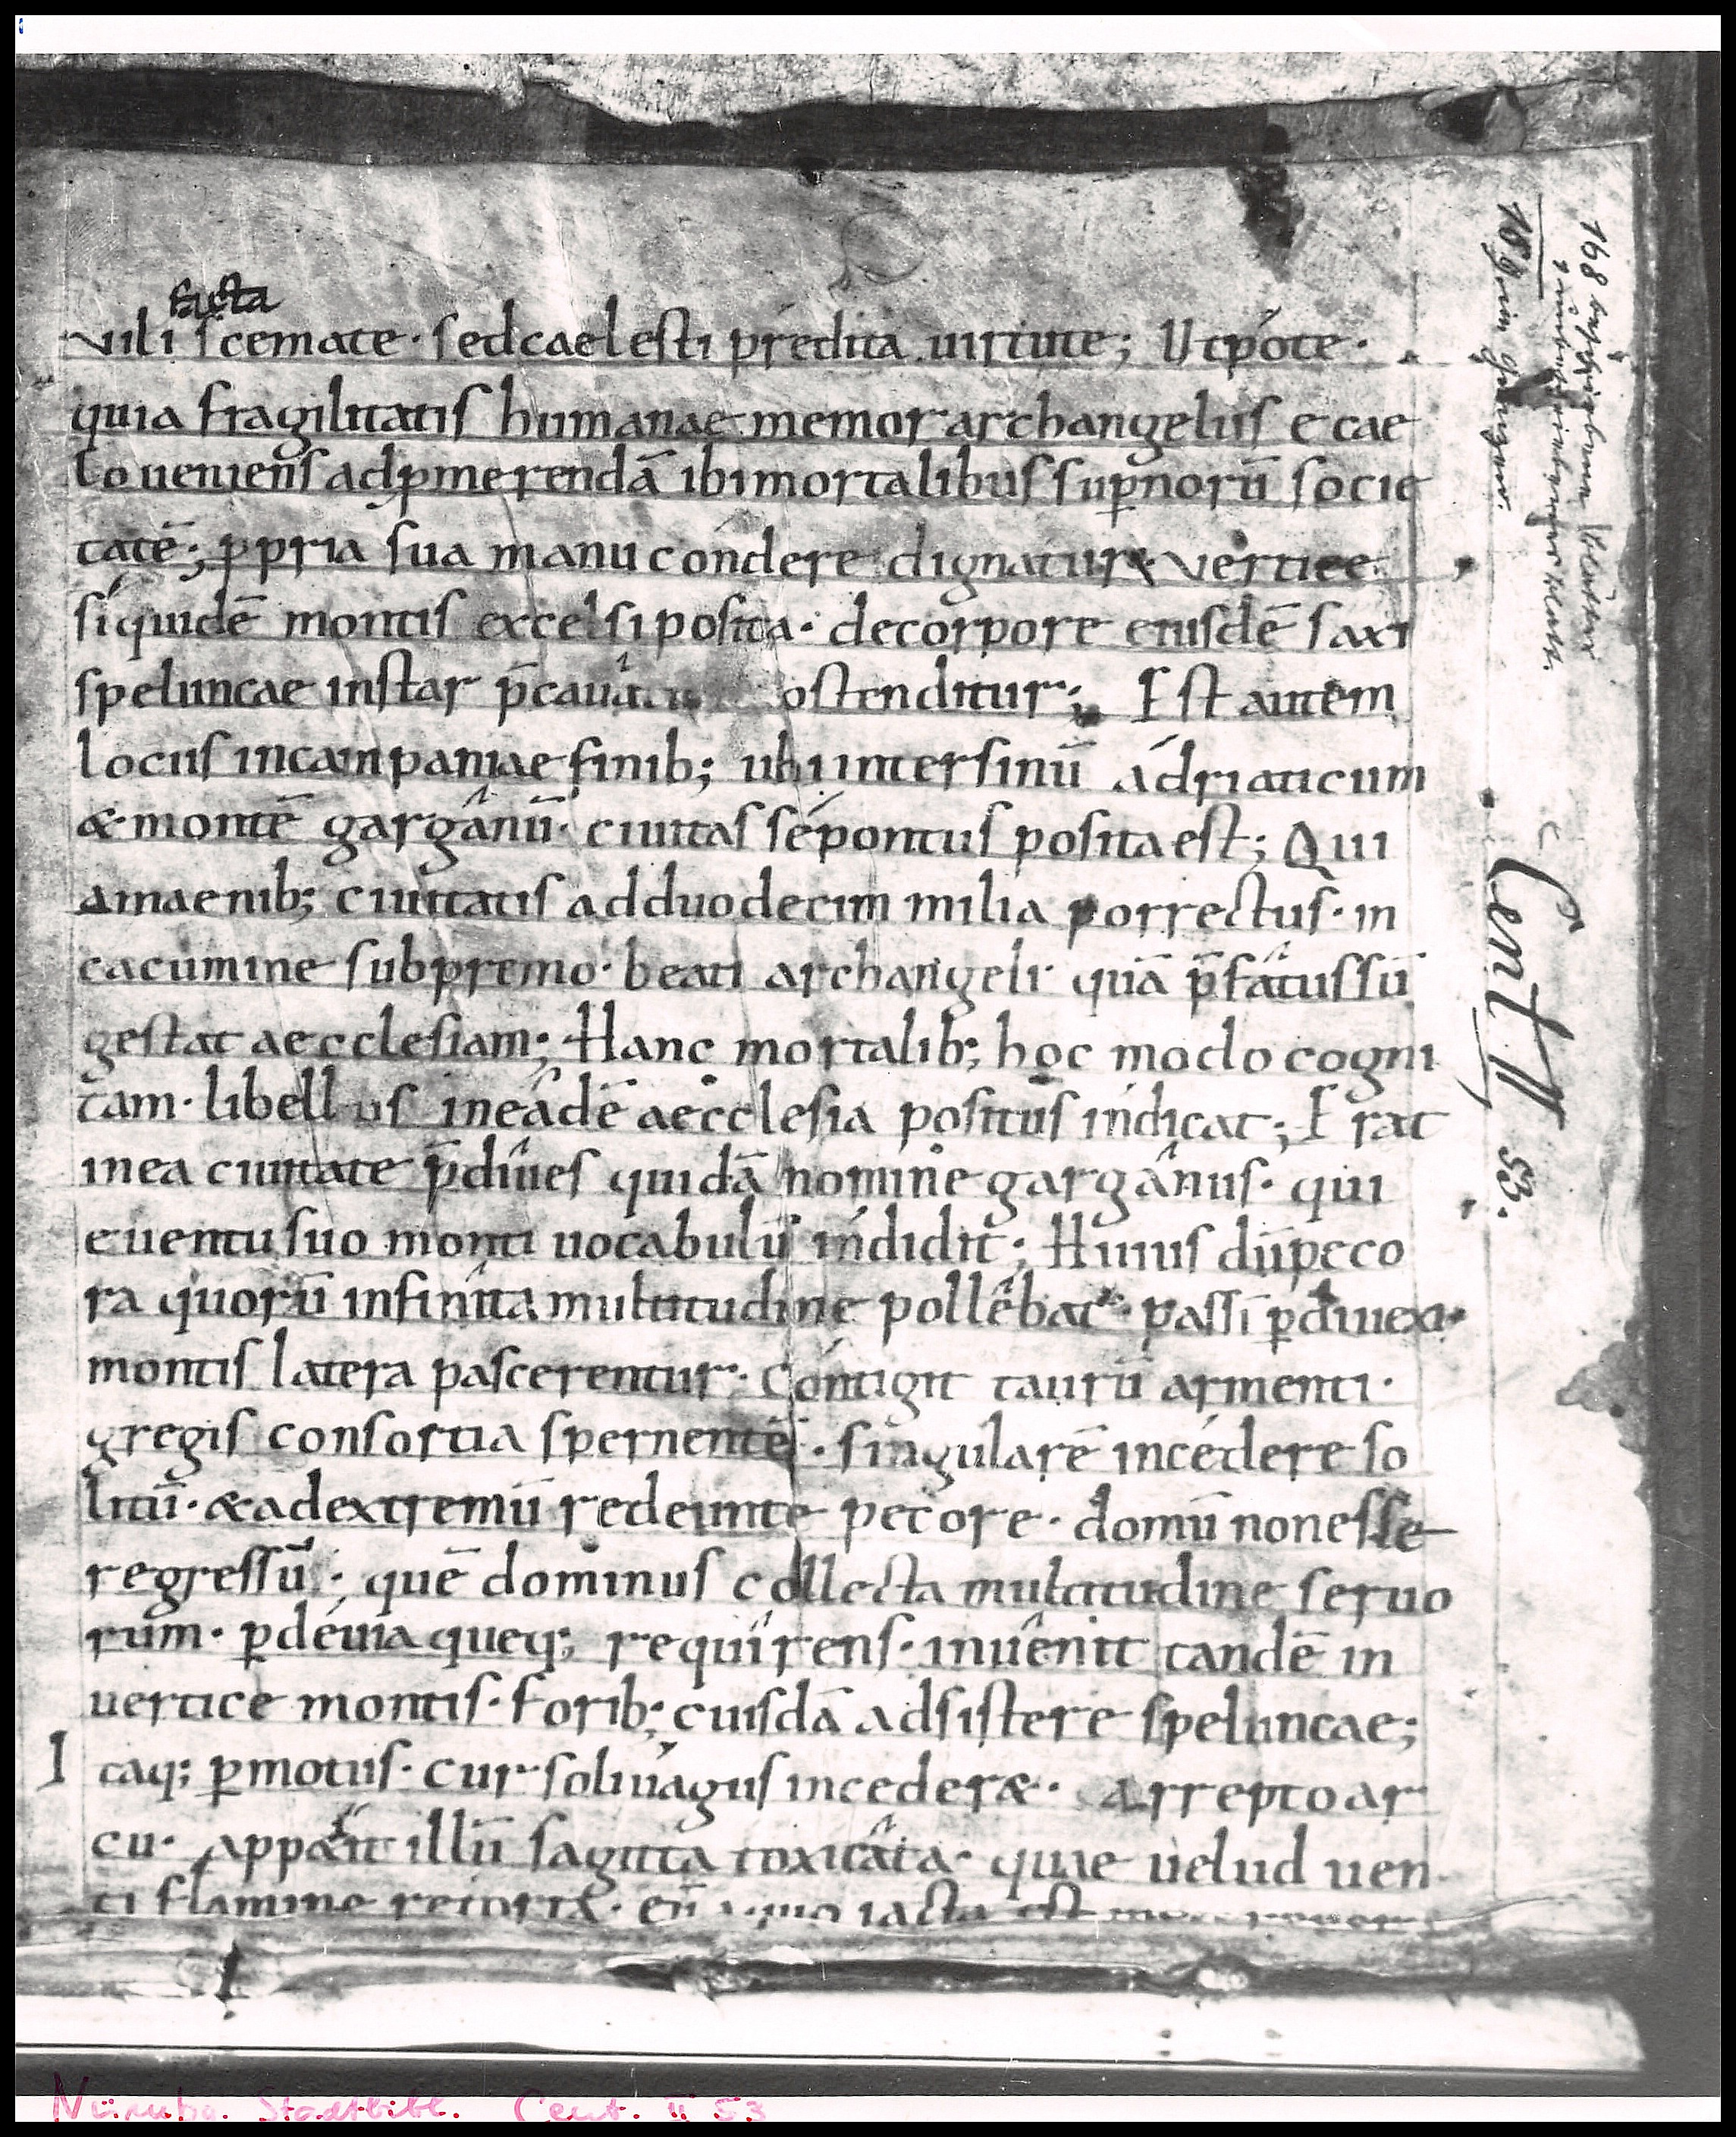 facta
vili scemate· sed caelesti prędita uirtute; Utpote·
quia fragilitatis humanae memor archangelus e cae
lo ueniens ad p̄merendā ibi mortalibus sup̄norū socie
tatē; p̄pria sua manu condere dignatur& vertice
siquidē montis excelsi posita· de corpore eiusdē saxi
speluncae instar p̄cauata ostenditur; Est autem
locus in campaniae finib; ubi inter sinū adriaticum
& montē gargânū· ciuitas sépontus posita est; Qui
a maenib; ciuitatis ad duodecim milia porrectus· in
cacumine subpremo· beati archangeli· quā p̄fâtus sū
gestat aecclesiam; Hanc mortalib; hoc modo cogni
tam· libellus in eâdē aecclesia positus indicat; Erat
in ea ciuitate p̄dîues quidā nomine gargânus· qui
euentu suo monti uocabulū indidit; Huius dū peco
ra quorū infinîta multitudine pollêbat· passī p̄ diuexi
montis latera pascerentur· Cóntigit taurū armenti·
gregis consortia spernentē· singularē incédere so
litū· & ad extremū redeunte pecore· domū non esse
regressū; quē dominus collecta multitudine seruo
rum· p̄ déuia queq; requîrens· inuênit tandē in
uertice montis· forib; cuisdā adsistere speluncae;
Itaq; p̄motus· cur soliuagus inceder&· Arrepto ar
cu· appetit illū sagitta toxicâta· quae uelud uen
ti flamine retort&· eū a quo iacta est
Cent II 53.
Nürnbg. Stadtbibl. Cent. II 53